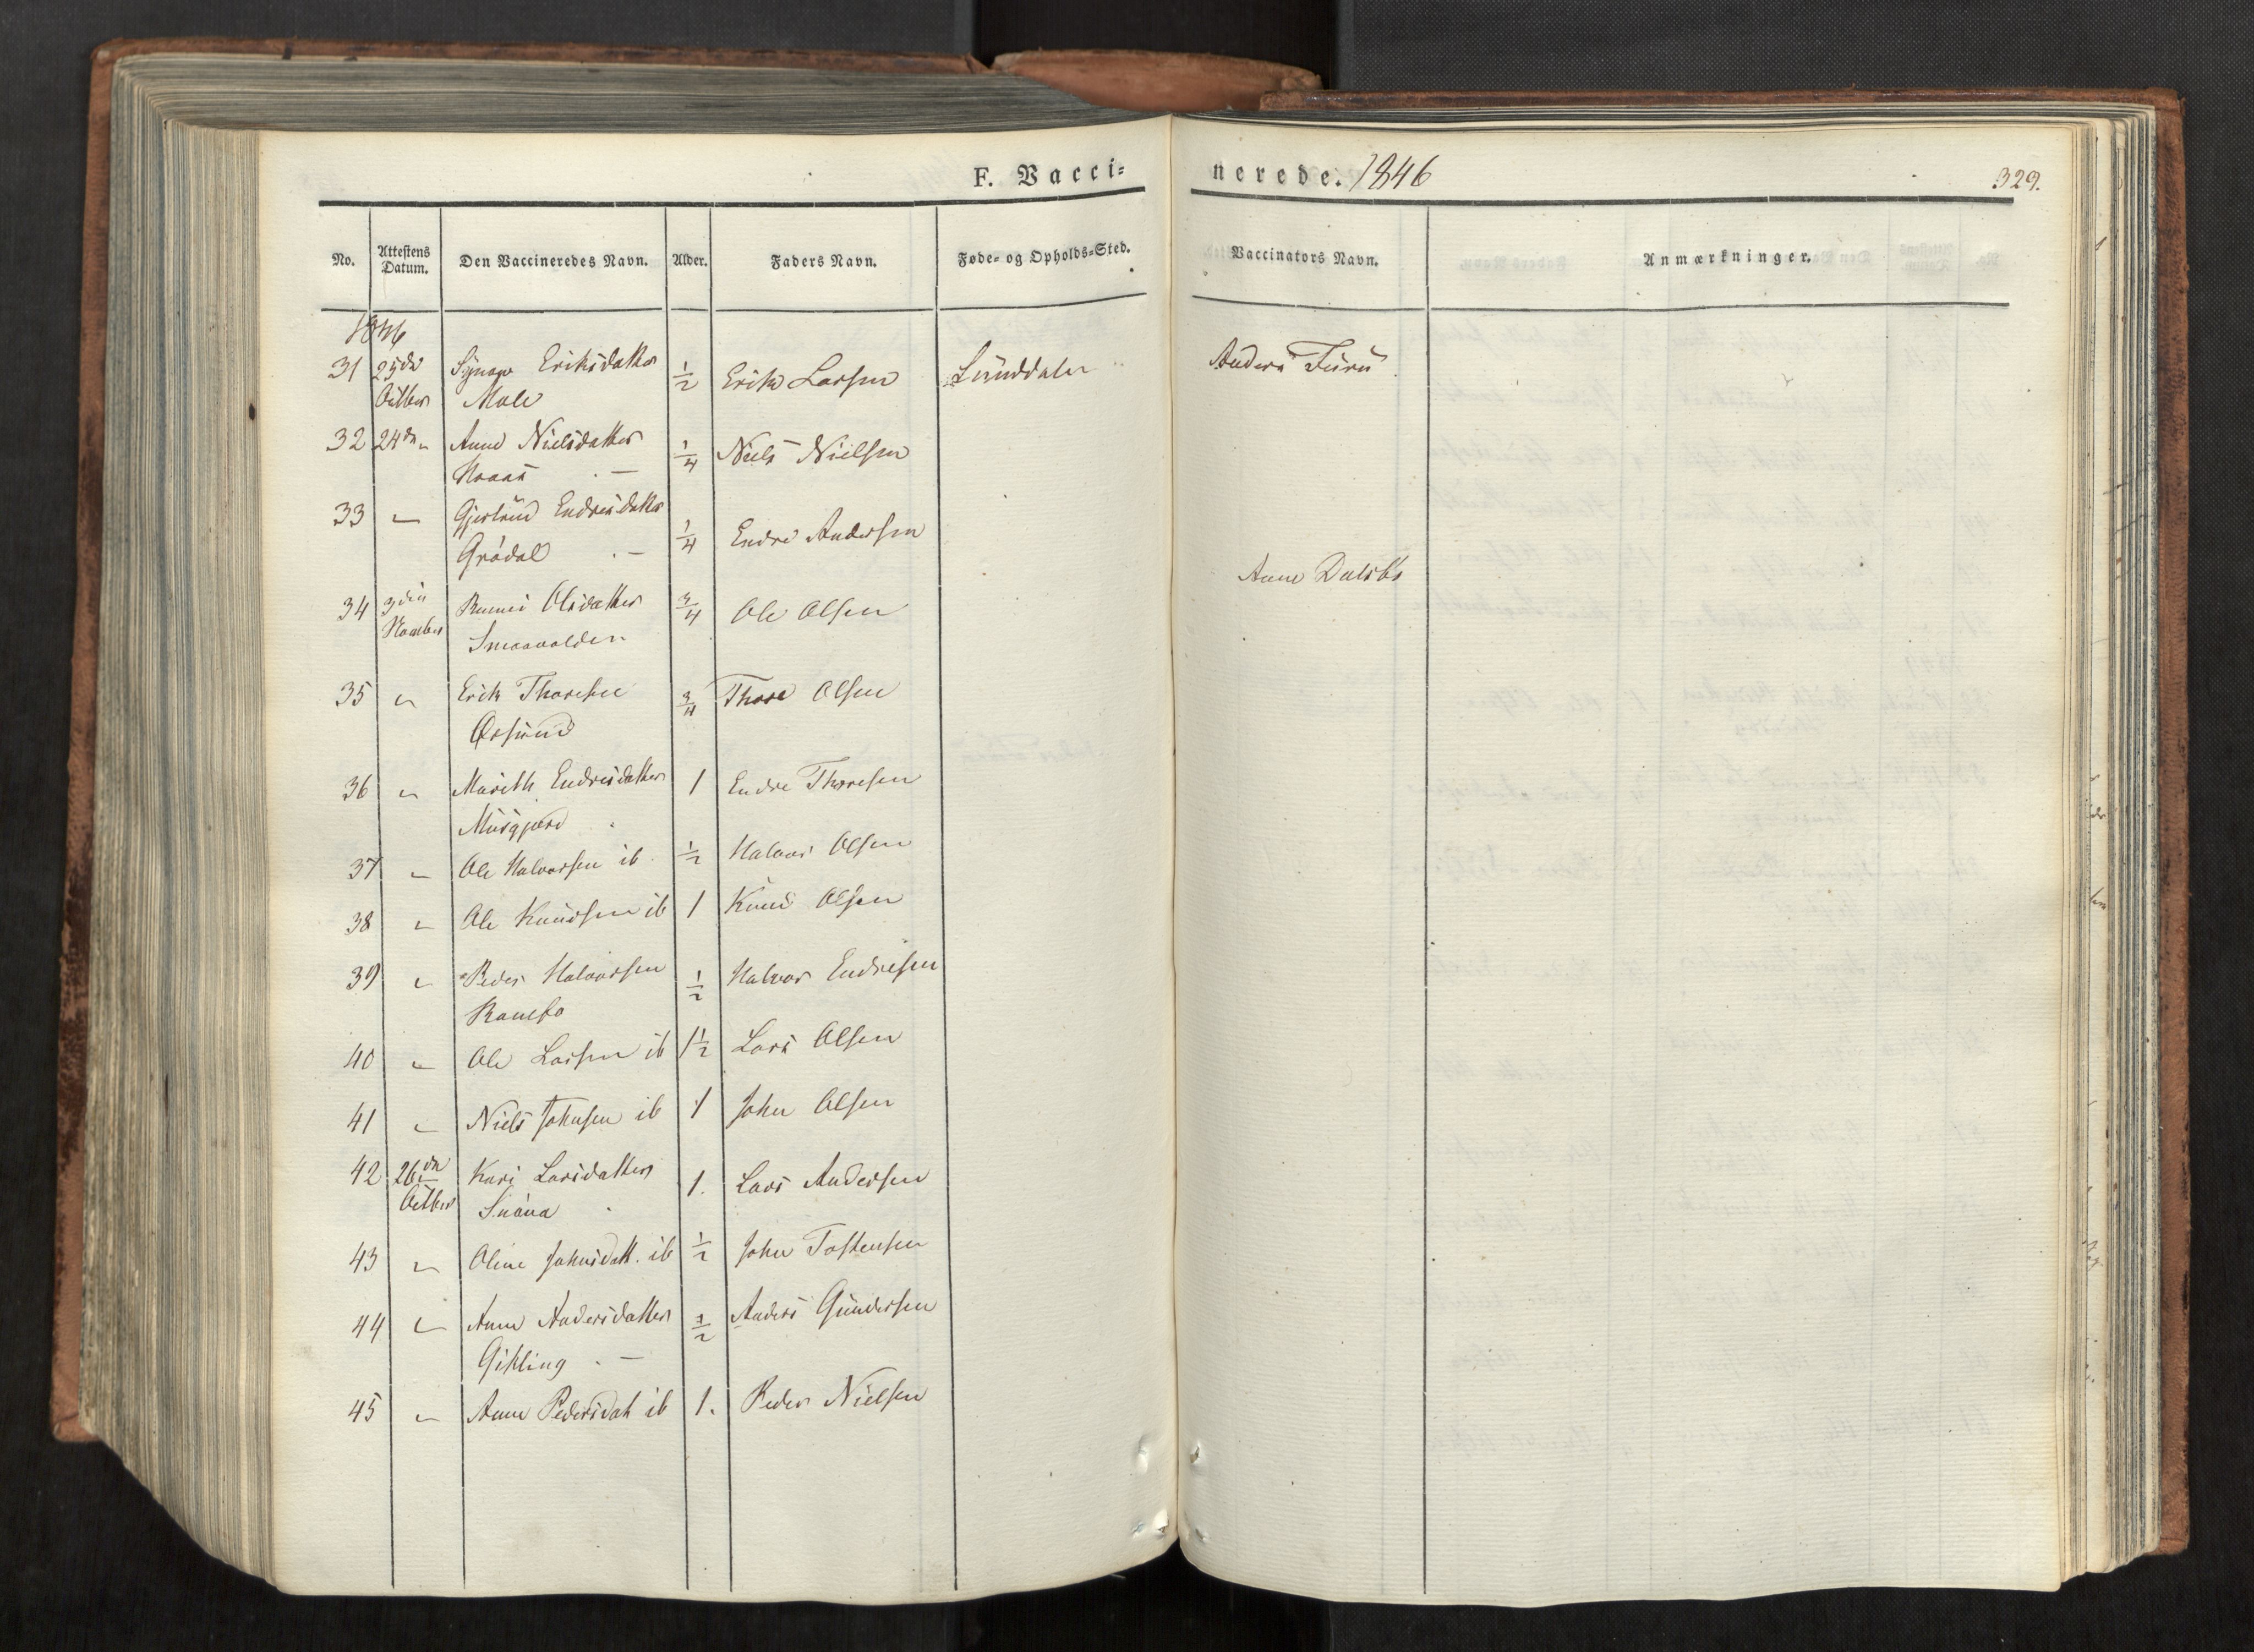 F. Vacci=
nerede. 1846
329.
No. Attestens Datum. Den Vaccineredes Navn. Alder. Faders Navn. Føde= og Opholds=Sted. Vaccinators Navn. Anmærkninger.
1846
31 25de Eriksdatter 1/2 Erik Larsen Sunddalen Anders Furu
Octber Mole
32 24de " Anne Nielsdatter 1/4 Niels Nielsen
33 " Gjertrud Endresdatter 1/4 Endre Andersen
Grødal
Anne Dalsbø
34 3die Olsdatter 3/4 Ole Olsen
Novbr Smaavolden
35 " Erik Thoresen 3/4 Thore Olsen
36 " Marith Endresdatter 1 Endre Thoresen
Musgjerd
37 " Ole Halvorsen ib 1/2 Halvor Olsen
38 " Ole Knudsen ib 1 Knud Olsen
39 " Peder Halvorsen 1/2 Halvor Endresen
40 " Ole Larsen ib 1 1/2 Lars Olsen
41 " Niels Johnsen ib 1 John Olsen
42 26de Kari Larsdatter 1. Lars Andersen
Octber
43 " Oline Johnsdatt. ib 1/2 John Tostensen
44 " Anne Andersdatter 1/2 Anders Gundersen
Gikling
45 " Anne Pedersdat ib 1. Peder Nielsen